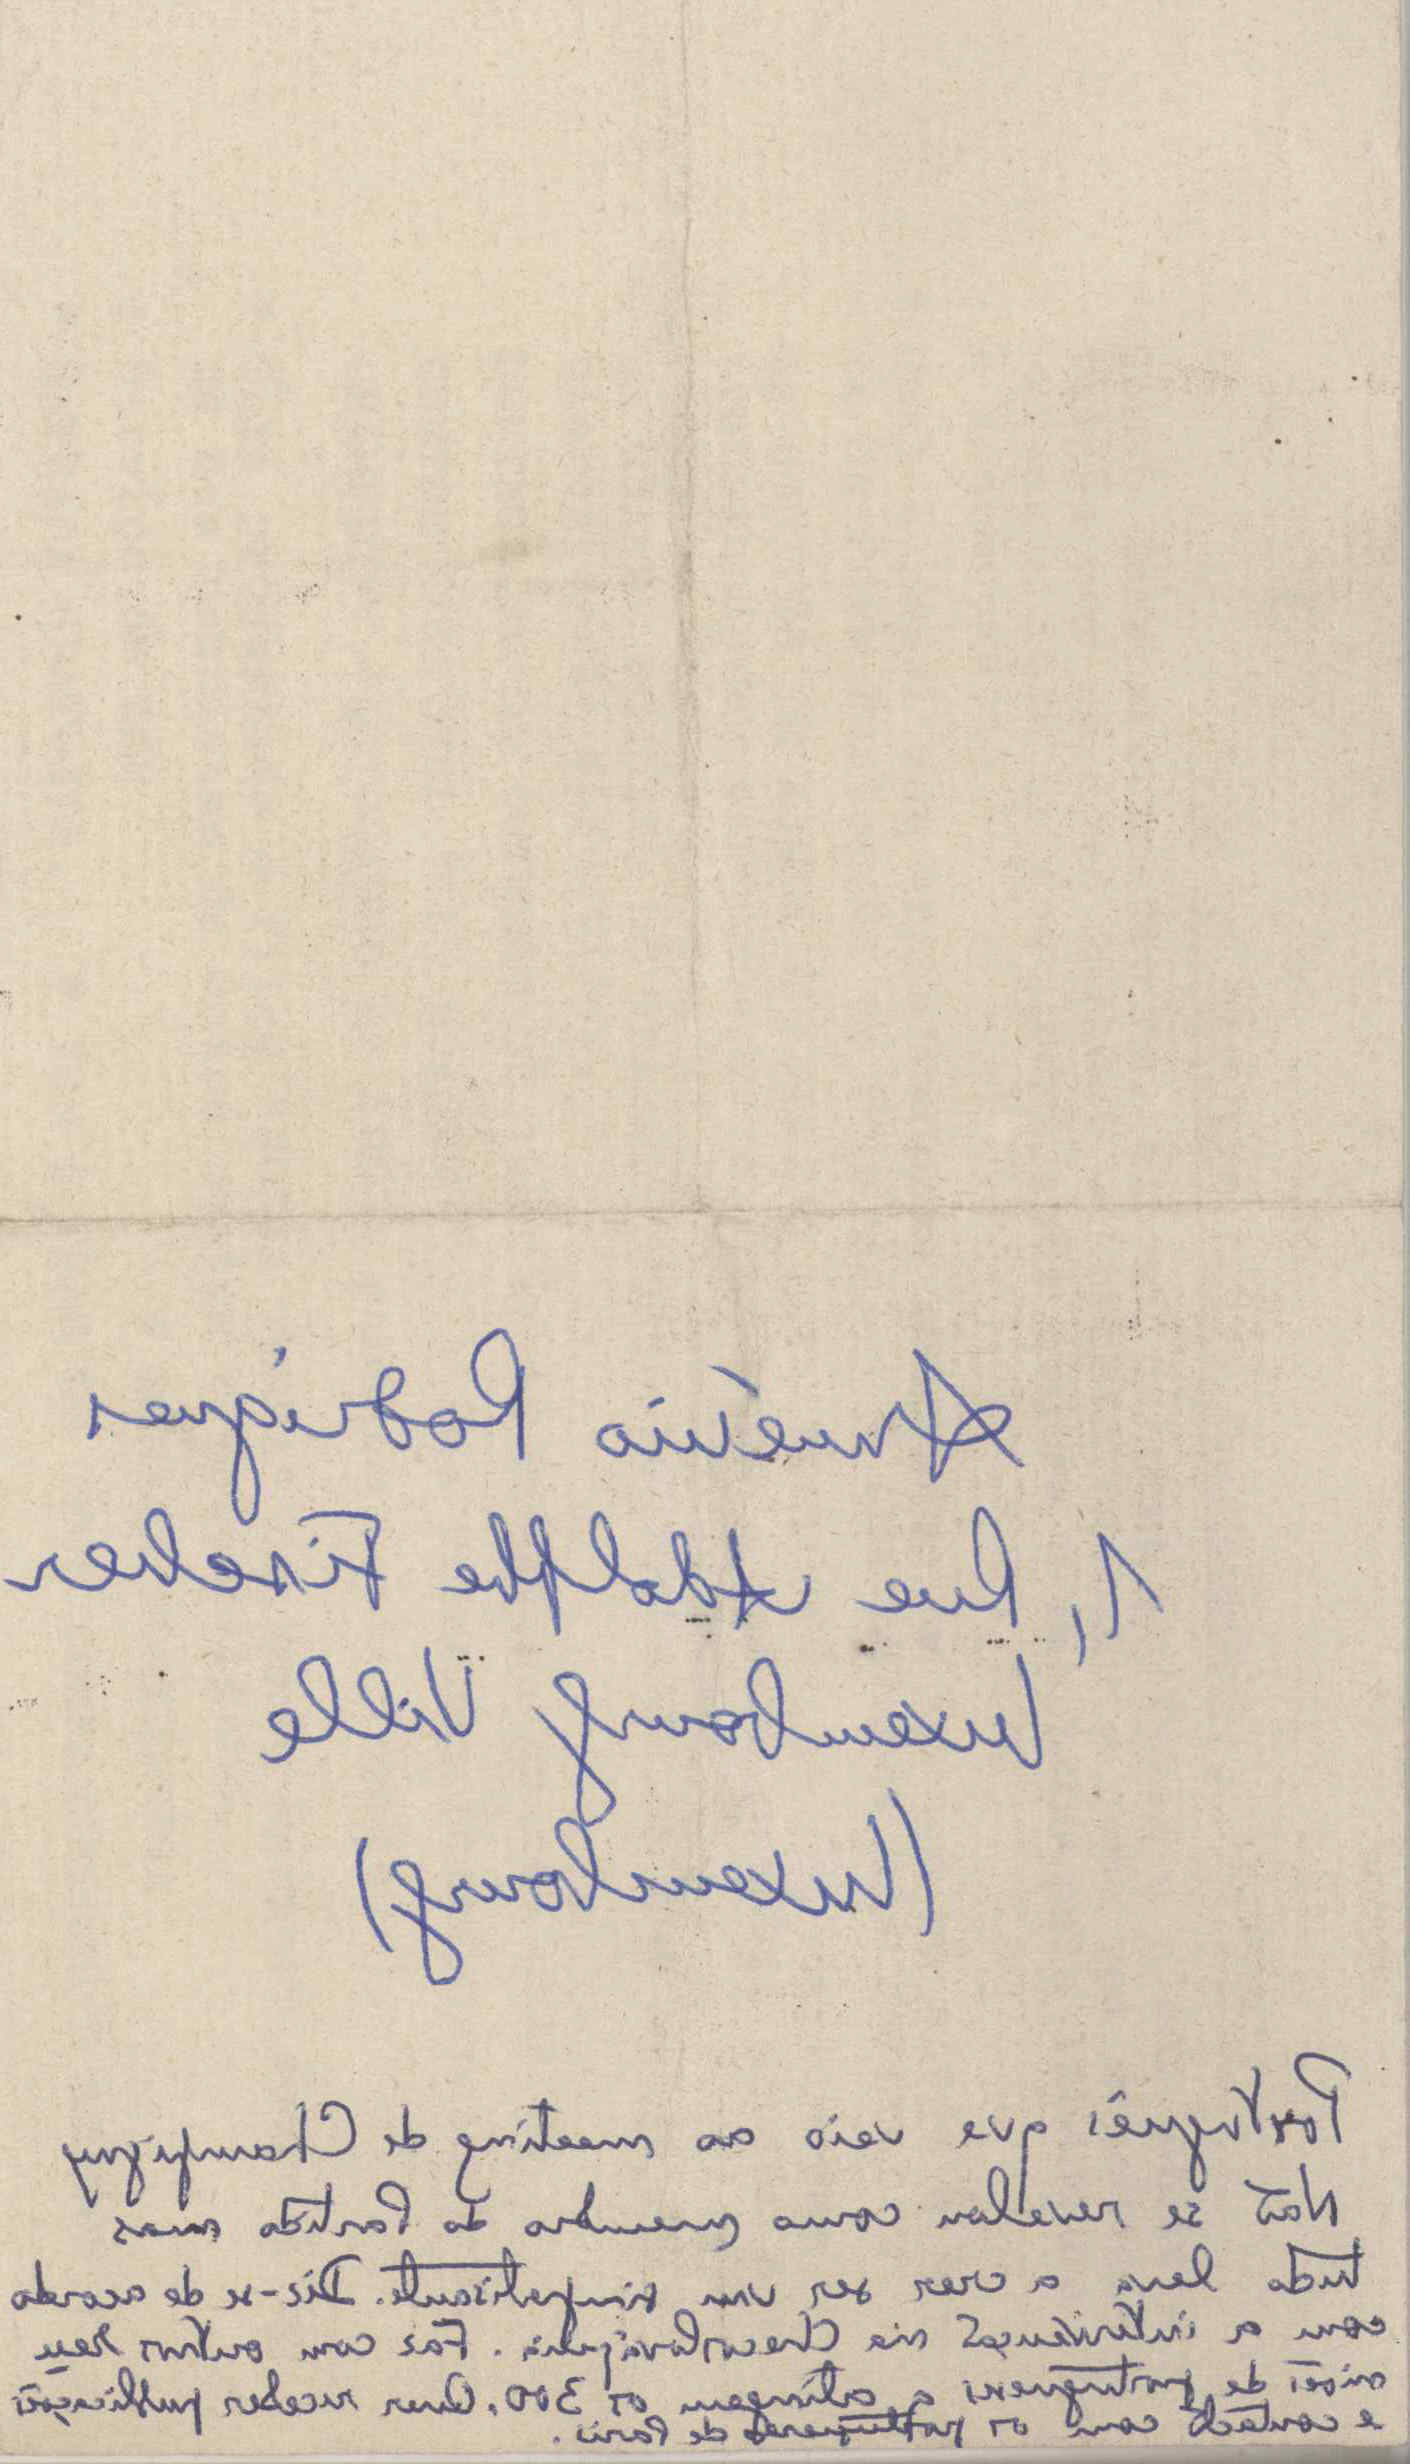 Américo Rodrigues
1, Rue Adolphe Fischer
Luxembourg Ville
(Luxembourg)
Português que veio ao meeting de Champigny
Não se revelou como membro do Partido mas
tudo leva a crer ser um simpatisante. Diz-se de acordo
com a intervenção na Checoslováquia. Faz com outros reu
niões de portugueses q atingem os 300. Quer receber publicações
e contacto com os portugueses de Paris.